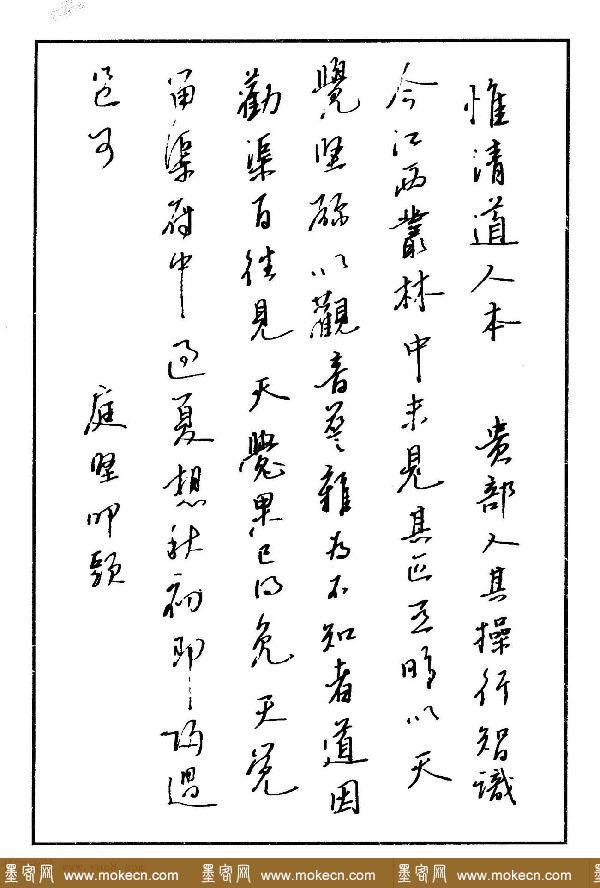 惟清道人本 貴部人其操行智識
今江西叢林中未見其匹亞昨以天
覺堅欲以觀音難为不知者道因
勸渠自往見 天覺果已得免 天覺
留渠府中過夏想秋初即歸過
邑可 庭堅叩頭
墨客网 www.mokecn.com 墨客网 www.mokecn.com 墨客网 www.mokecn.com